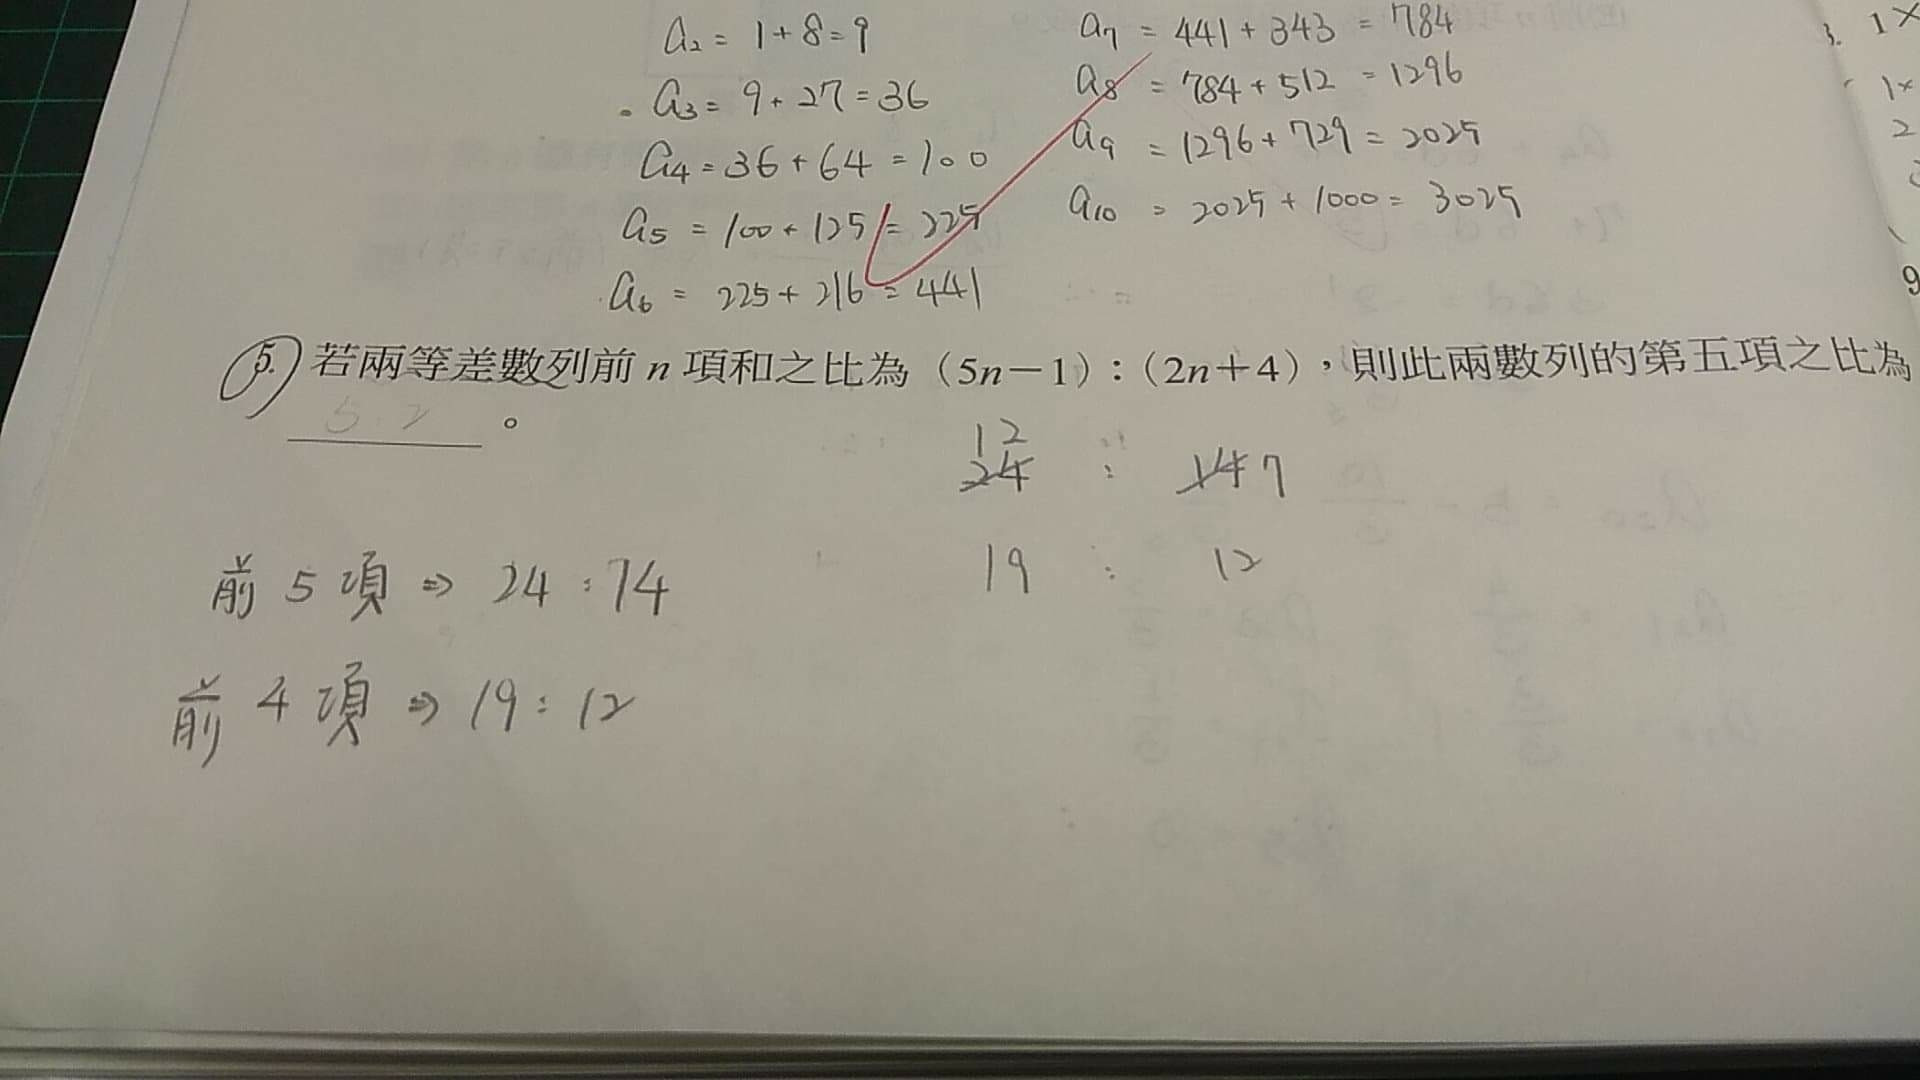 a₂ = 1+8=9
a₃= 9+27=36
a₄=36+64=100
a₅ =100+125=225
a₆ = 225+216=441
a₇ = 441+343 =784
a₈ =784+512 =1296
a₉ =1296+729=2025
a₁₀ = 2025+1000= 3025
3. 1×
1×
2
9
5. 若兩等差數列前 n 項和之比為（5n－1）:（2n＋4），則此兩數列的第五項之比為
5:2 。
12
24 : 14 7
19 : 12
前 5 項 ⇒ 24 :14
前 4 項 ⇒ 19 : 12